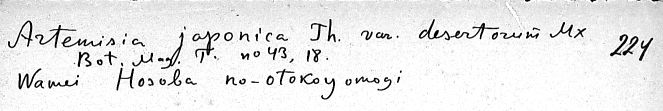 Artemisia japonica Th. var. desertorum Mx 224
Bot. Mag. T. no 43, 18.
Wamei Hosoba no-otokoyomogi